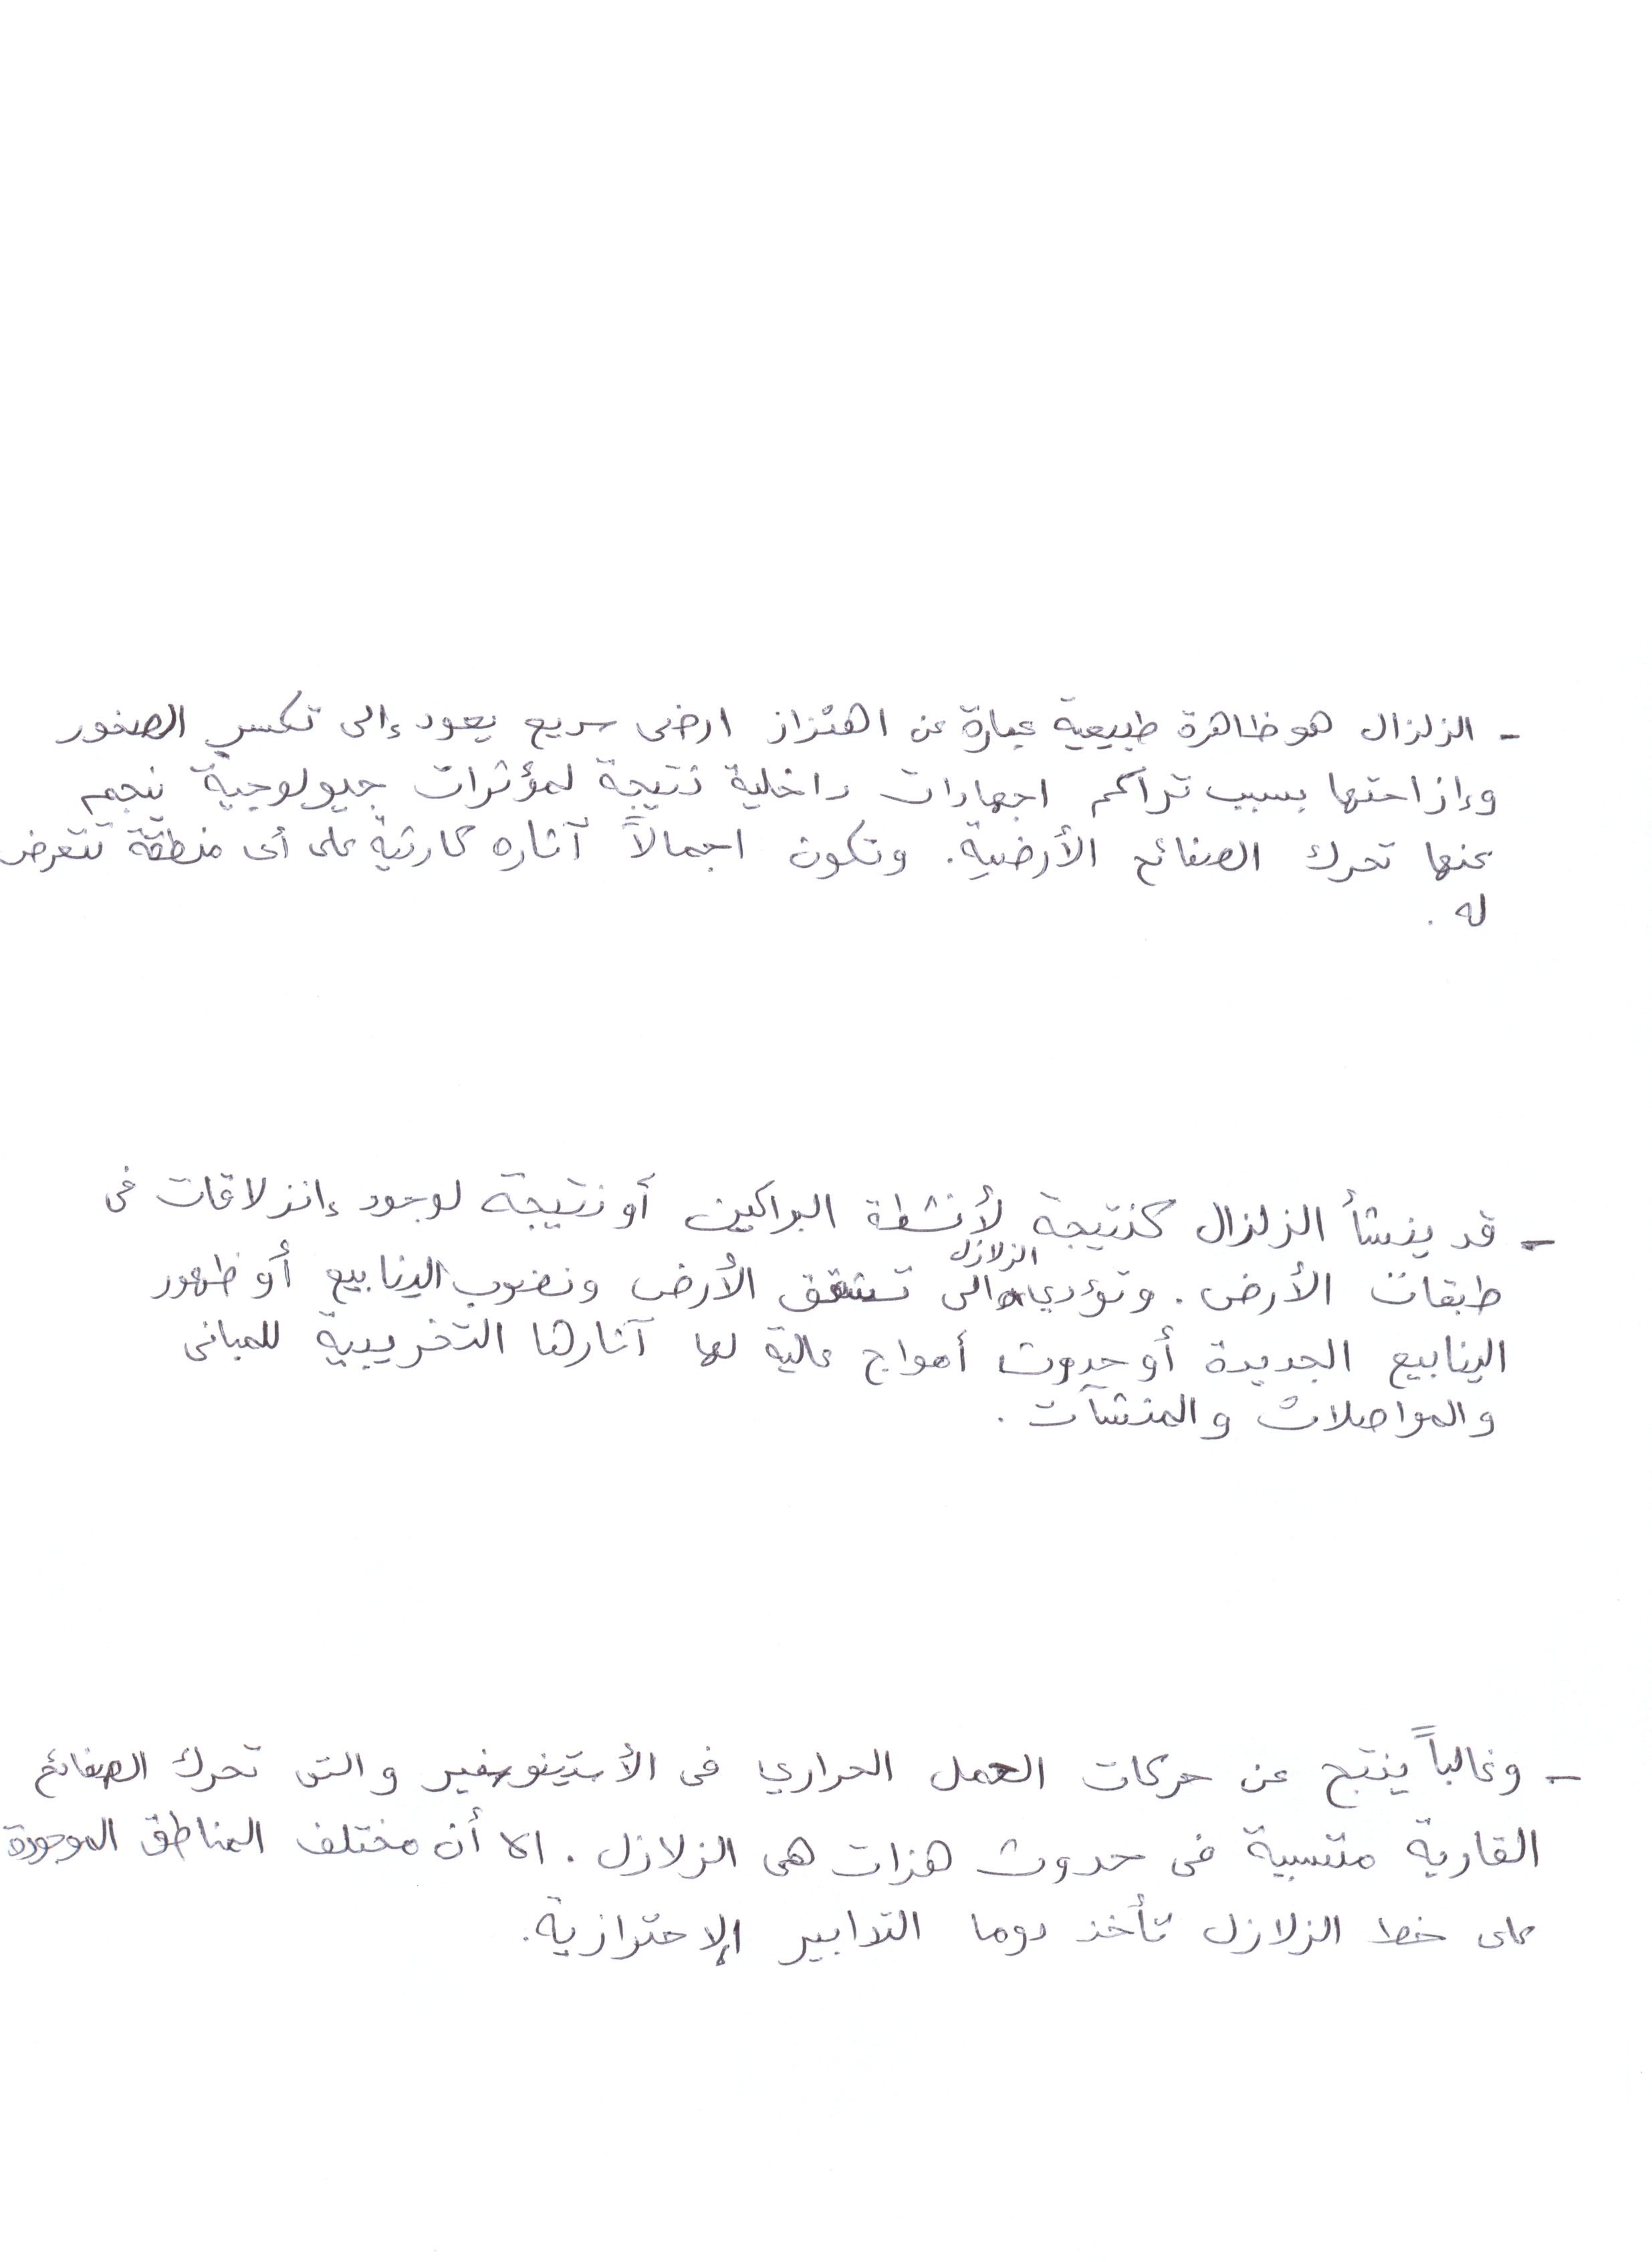 - الزلزال هو ظاهرة طبيعية عبارة عن اهتزاز ارضى سريع يعود إلى تكسر الصخور
وإزاحتها بسبب تراكم اجهادات داخلية نتيجة لمؤثرات جيولوجية ينجم
عنها تحرك الصفائح الأرضية. وتكون اجمالاً آثاره كارثية على أى منطقة تتعرض
له .
- قد ينشأ الزلزال كنتيجة لأنشطة البراكين أو نتيجة لوجود إنزلاقات فى
طبقات الأرض . وتؤدي الزلازل الى تشقق الأرض ونضوب الينابيع أو ظهور
الينابيع الجديدة أو حدوث أمواج عالية لها آثارها التخريبية للمبانى
والمواصلات والمنشآت .
- وغالباً ينتج عن حركات الحمل الحراري فى الأستينوسفير والتى تحرك الصفائح
القارية متسببة فى حدوث هزات هى الزلازل . الا أن مختلف المناطق الموجودة
على خط الزلازل تأخذ دوما التدابير الإحترازية.